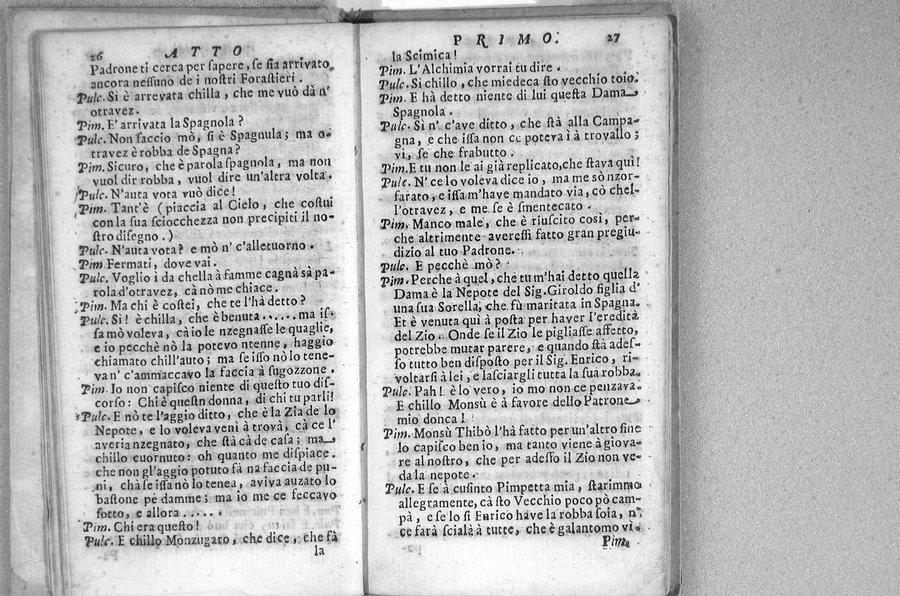 26 ATTO
Padrone ti cerca per sapere, se sia arrivato
ancora nessuno de i nostri Forastieri.
Pulc. Sì è arrevata chilla, che me vuò dà n'
otravez.
Pim. E' arrivata la Spagnola?
Pulc. Non saccio mò, si è Spagnula; ma o-
travez è robba de Spagna?
Pim. Sicuro, che è parola spagnola, ma non
vuol dir robba, vuol dire un'altra volta.
Pulc. N'auta vota vuò dice!
Pim. Tant'è (piaccia al Cielo, che costui
con la sua sciocchezza non precipiti il no-
stro disegno.)
Pulc. N'auta vota? e mò n' c'alletuorno.
Pim Fermati, dove vai.
Pulc. Voglio ì da chella à famme cagnà sà pa-
rola d'otravez, cà nò me chiace.
Pim. Ma chi è costei, che te l'hà detto?
Pulc. Sì! è chilla, che è benuta......ma is-
sa mò voleva, cà io le nzegnasse le quaglie,
e io pecchè nò la potevo ntenne, haggio
chiamato chill'auto; ma se isso nò lo tene-
va n' c'ammaccavo la faccia à sugozzone.
Pim. Io non capisco niente di questo tuo dis-
corso: Chi è questn donna, di chi tu parli!
Pulc. E nò te l'aggio ditto, che è la Zia de lo
Nepote, e lo voleva venì à trovà, cà ce l'
averia nzegnato, che stà cà de casa; ma
chillo cuornuto: oh quanto me dispiace.
che non gl'aggio potuto fà na faccia de pu-
ni, chà se issa nò lo tenea, aviva auzato lo
bastone pe damme; ma io me ce feccavo
sotto, e allora......
Pim. Chi era questo!
Pulc. E chillo Monzugaro, che dice, che fà
la
PRIMO. 27
la Scimica!
Pim. L'Alchimia vorrai tu dire.
Pulc. Sì chillo, che miedeca sto vecchio toio.
Pim. E hà detto niente di lui questa Dama
Spagnola.
Pulc. Sì n' c'ave ditto, che stà alla Campa-
gna, e che issa non ce poteva ì à trovallo;
vì, se che frabutto.
Pim. E tu non le ai già replicato, che stava quì!
Pulc. N' ce lo voleva dice io, ma me sò nzor-
farato, e issa m'have mandato via, cò chel-
l'otravez, e me se è smentecato.
Pim. Manco male, che è riuscito così, per-
che altrimente averessi fatto gran pregiu-
dizio al tuo Padrone.
Pulc. E pecchè mò?
Pim. Perche à quel, che tu m'hai detto quella
Dama è la Nepote del Sig. Giroldo figlia d'
una sua Sorella, che fù maritata in Spagna.
Et è venuta quì à posta per haver l'eredità
del Zio. Onde se il Zio le pigliasse affetto,
potrebbe mutar parere, e quando stà ades-
so tutto ben disposto per il Sig. Enrico, ri-
voltarsi à lei, e lasciargli tutta la sua robba.
Pulc. Pah! è lo vero, io mo non ce penzava.
E chillo Monsù è à favore dello Patrone
mio donca!
Pim. Monsù Thibò l'hà fatto per un'altro fine
lo capisco ben io, ma tanto viene à giova-
re al nostro, che per adesso il Zio non ve-
da la nepote.
Pulc. E se à cusinto Pimpetta mia, starimmo
allegramente, cà sto Vecchio poco pò cam-
pà, e se lo si Enrico have la robba soia, n'
ce farà scialà à tutte, che è galantomo vì.
Pim.